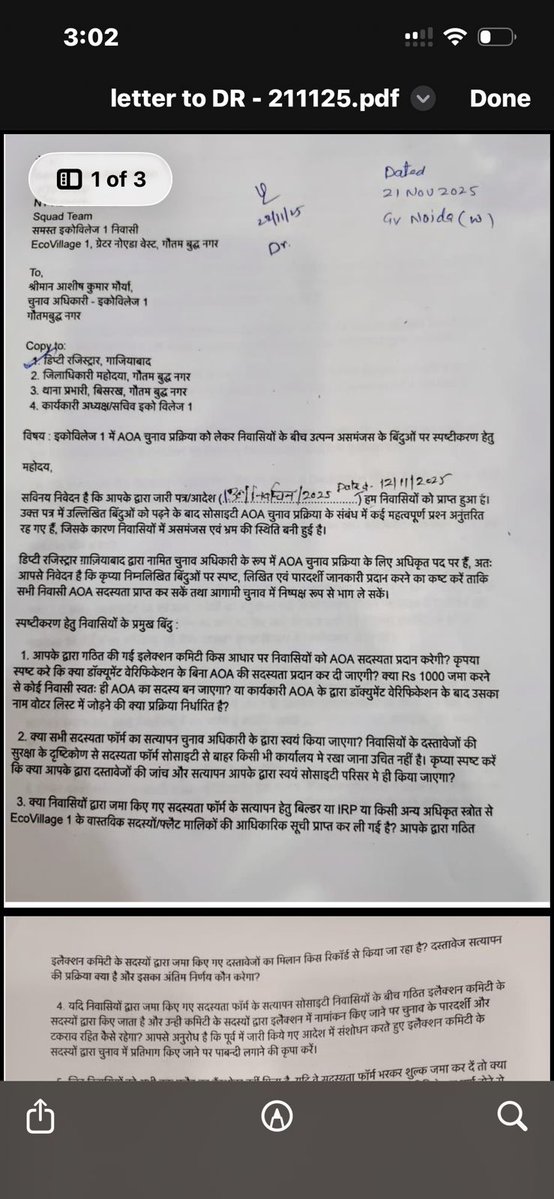 3:02
letter to DR - 211125.pdf
Done
1 of 3
Dated
21 Nov 2025
Gr Noida (w)
28/11/25
Dr.
Squad Team
समस्त इकोविलेज 1 निवासी
EcoVillage 1, ग्रेटर नोएडा वेस्ट, गौतम बुद्ध नगर
To,
श्रीमान आशीष कुमार मौर्या,
चुनाव अधिकारी - इकोविलेज 1
गौतमबुद्ध नगर
Copy to:
1. डिप्टी रजिस्ट्रार, गाजियाबाद
2. जिलाधिकारी महोदया, गौतम बुद्ध नगर
3. थाना प्रभारी, बिसरख, गौतम बुद्ध नगर
4. कार्यकारी अध्यक्ष/सचिव इको विलेज 1
विषय : इकोविलेज 1 में AOA चुनाव प्रक्रिया को लेकर निवासियों के बीच उत्पन्न असमंजस के बिंदुओं पर स्पष्टीकरण हेतु
महोदय,
सविनय निवेदन है कि आपके द्वारा जारी पत्र/आदेश (/2025 Dated. 12/11/2025) हम निवासियों को प्राप्त हुआ है।
उक्त पत्र में उल्लिखित बिंदुओं को पढ़ने के बाद सोसाइटी AOA चुनाव प्रक्रिया के संबंध में कई महत्वपूर्ण प्रश्न अनुत्तरित
रह गए हैं, जिसके कारण निवासियों में असमंजस एवं भ्रम की स्थिति बनी हुई है।
डिप्टी रजिस्ट्रार ग़ाज़ियाबाद द्वारा नामित चुनाव अधिकारी के रूप में AOA चुनाव प्रक्रिया के लिए अधिकृत पद पर हैं, अतः
आपसे निवेदन है कि कृप्या निम्नलिखित बिंदुओं पर स्पष्ट, लिखित एवं पारदर्शी जानकारी प्रदान करने का कष्ट करें ताकि
सभी निवासी AOA सदस्यता प्राप्त कर सकें तथा आगामी चुनाव में निष्पक्ष रूप से भाग ले सकें।
स्पष्टीकरण हेतु निवासियों के प्रमुख बिंदु :
1. आपके द्वारा गठित की गई इलेक्शन कमिटी किस आधार पर निवासियों को AOA सदस्यता प्रदान करेगी? कृपया
स्पष्ट करे कि क्या डॉक्यूमेंट वेरिफिकेशन के बिना AOA की सदस्यता प्रदान कर दी जाएगी? क्या Rs 1000 जमा करने
से कोई निवासी स्वतः ही AOA का सदस्य बन जाएगा? या कार्यकारी AOA के द्वारा डॉक्युमेंट वेरिफिकेशन के बाद उसका
नाम वोटर लिस्ट में जोड़ने की क्या प्रक्रिया निर्धारित है?
2. क्या सभी सदस्यता फॉर्म का सत्यापन चुनाव अधिकारी के द्वारा स्वयं किया जाएगा? निवासियों के दस्तावेजों की
सुरक्षा के दृष्टिकोण से सदस्यता फॉर्म सोसाइटी से बाहर किसी भी कार्यालय मे रखा जाना उचित नहीं है। कृप्या स्पष्ट करें
कि क्या आपके द्वारा दस्तावेजों की जांच और सत्यापन आपके द्वारा स्वयं सोसाइटी परिसर मे ही किया जाएगा?
3. क्या निवासियों द्वारा जमा किए गए सदस्यता फॉर्म के सत्यापन हेतु बिल्डर या IRP या किसी अन्य अधिकृत स्त्रोत से
EcoVillage 1 के वास्तविक सदस्यों/फ्लैट मालिकों की आधिकारिक सूची प्राप्त कर ली गई है? आपके द्वारा गठित
इलैक्शन कमिटी के सदस्यों द्वारा जमा किए गए दस्तावेजों का मिलान किस रिकॉर्ड से किया जा रहा है? दस्तावेज सत्यापन
की प्रक्रिया क्या है और इसका अंतिम निर्णय कौन करेगा?
4. यदि निवासियों द्वारा जमा किए गए सदस्यता फॉर्म के सत्यापन सोसाइटी निवासियों के बीच गठित इलैक्शन कमिटी के
सदस्यों द्वारा किए जाता है और उन्ही कमिटी के सदस्यों द्वारा इलैक्शन में नामांकन किए जाने पर चुनाव के पारदर्शी और
टकराव रहित कैसे रहेगा? आपसे अनुरोध है कि पूर्व में जारी किये गए आदेश में संशोधन करते हुए इलैक्शन कमिटी के
सदस्यों द्वारा चुनाव में प्रतिभाग किए जाने पर पाबन्दी लगाने की कृपा करें।
यदि वे सदस्यता फॉर्म भरकर शुल्क जमा कर दें तो क्या